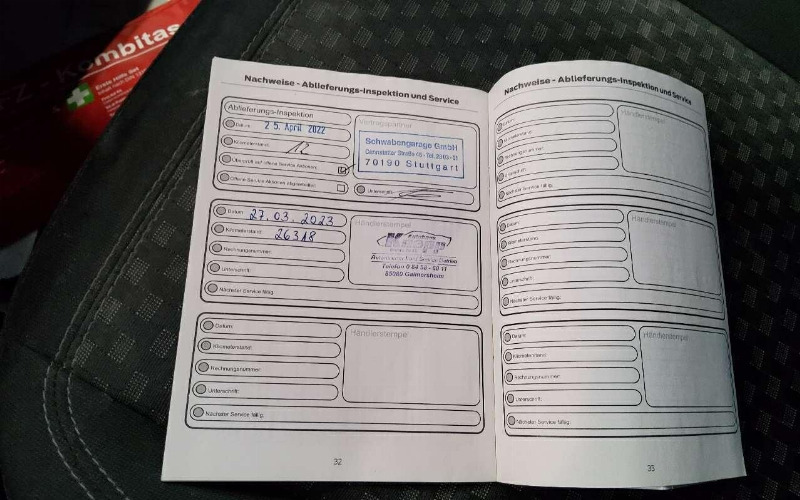 Kombitas
Erste Hilfe Set
Nachweise - Ablieferungs-Inspektion und Service
Ablieferungs-Inspektion
Datum: 25. April 2022
Kilometerstand: 12
Überprüft auf offene Service Aktionen:
Offene Service Aktionen abgearbeitet:
Vertragspartner
Schwabengarage GmbH
70190 Stuttgart
Unterschrift:
Datum: 27.03.2023
Kilometerstand: 26318
Rechnungsnummer:
Unterschrift:
Nächster Service fällig:
Händlerstempel
85080 Gaimersheim
Datum:
Kilometerstand:
Rechnungsnummer:
Unterschrift:
Nächster Service fällig:
Händlerstempel
32
Nachweise - Ablieferungs-Inspektion und Service
Datum:
Kilometerstand:
Rechnungsnummer:
Unterschrift:
Nächster Service fällig:
Händlerstempel
Datum:
Kilometerstand:
Rechnungsnummer:
Unterschrift:
Nächster Service fällig:
Händlerstempel
Datum:
Kilometerstand:
Rechnungsnummer:
Unterschrift:
Nächster Service fällig:
Händlerstempel
33